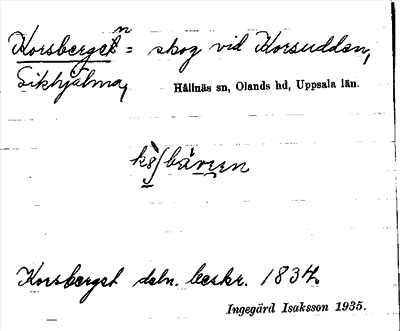 Korsberget n = skog vid Korsudden,
Sikhjälma, Hållnäs sn, Olands hd, Uppsala län.
Korsberget deln. beskr. 1834.
Ingegärd Isaksson 1935.